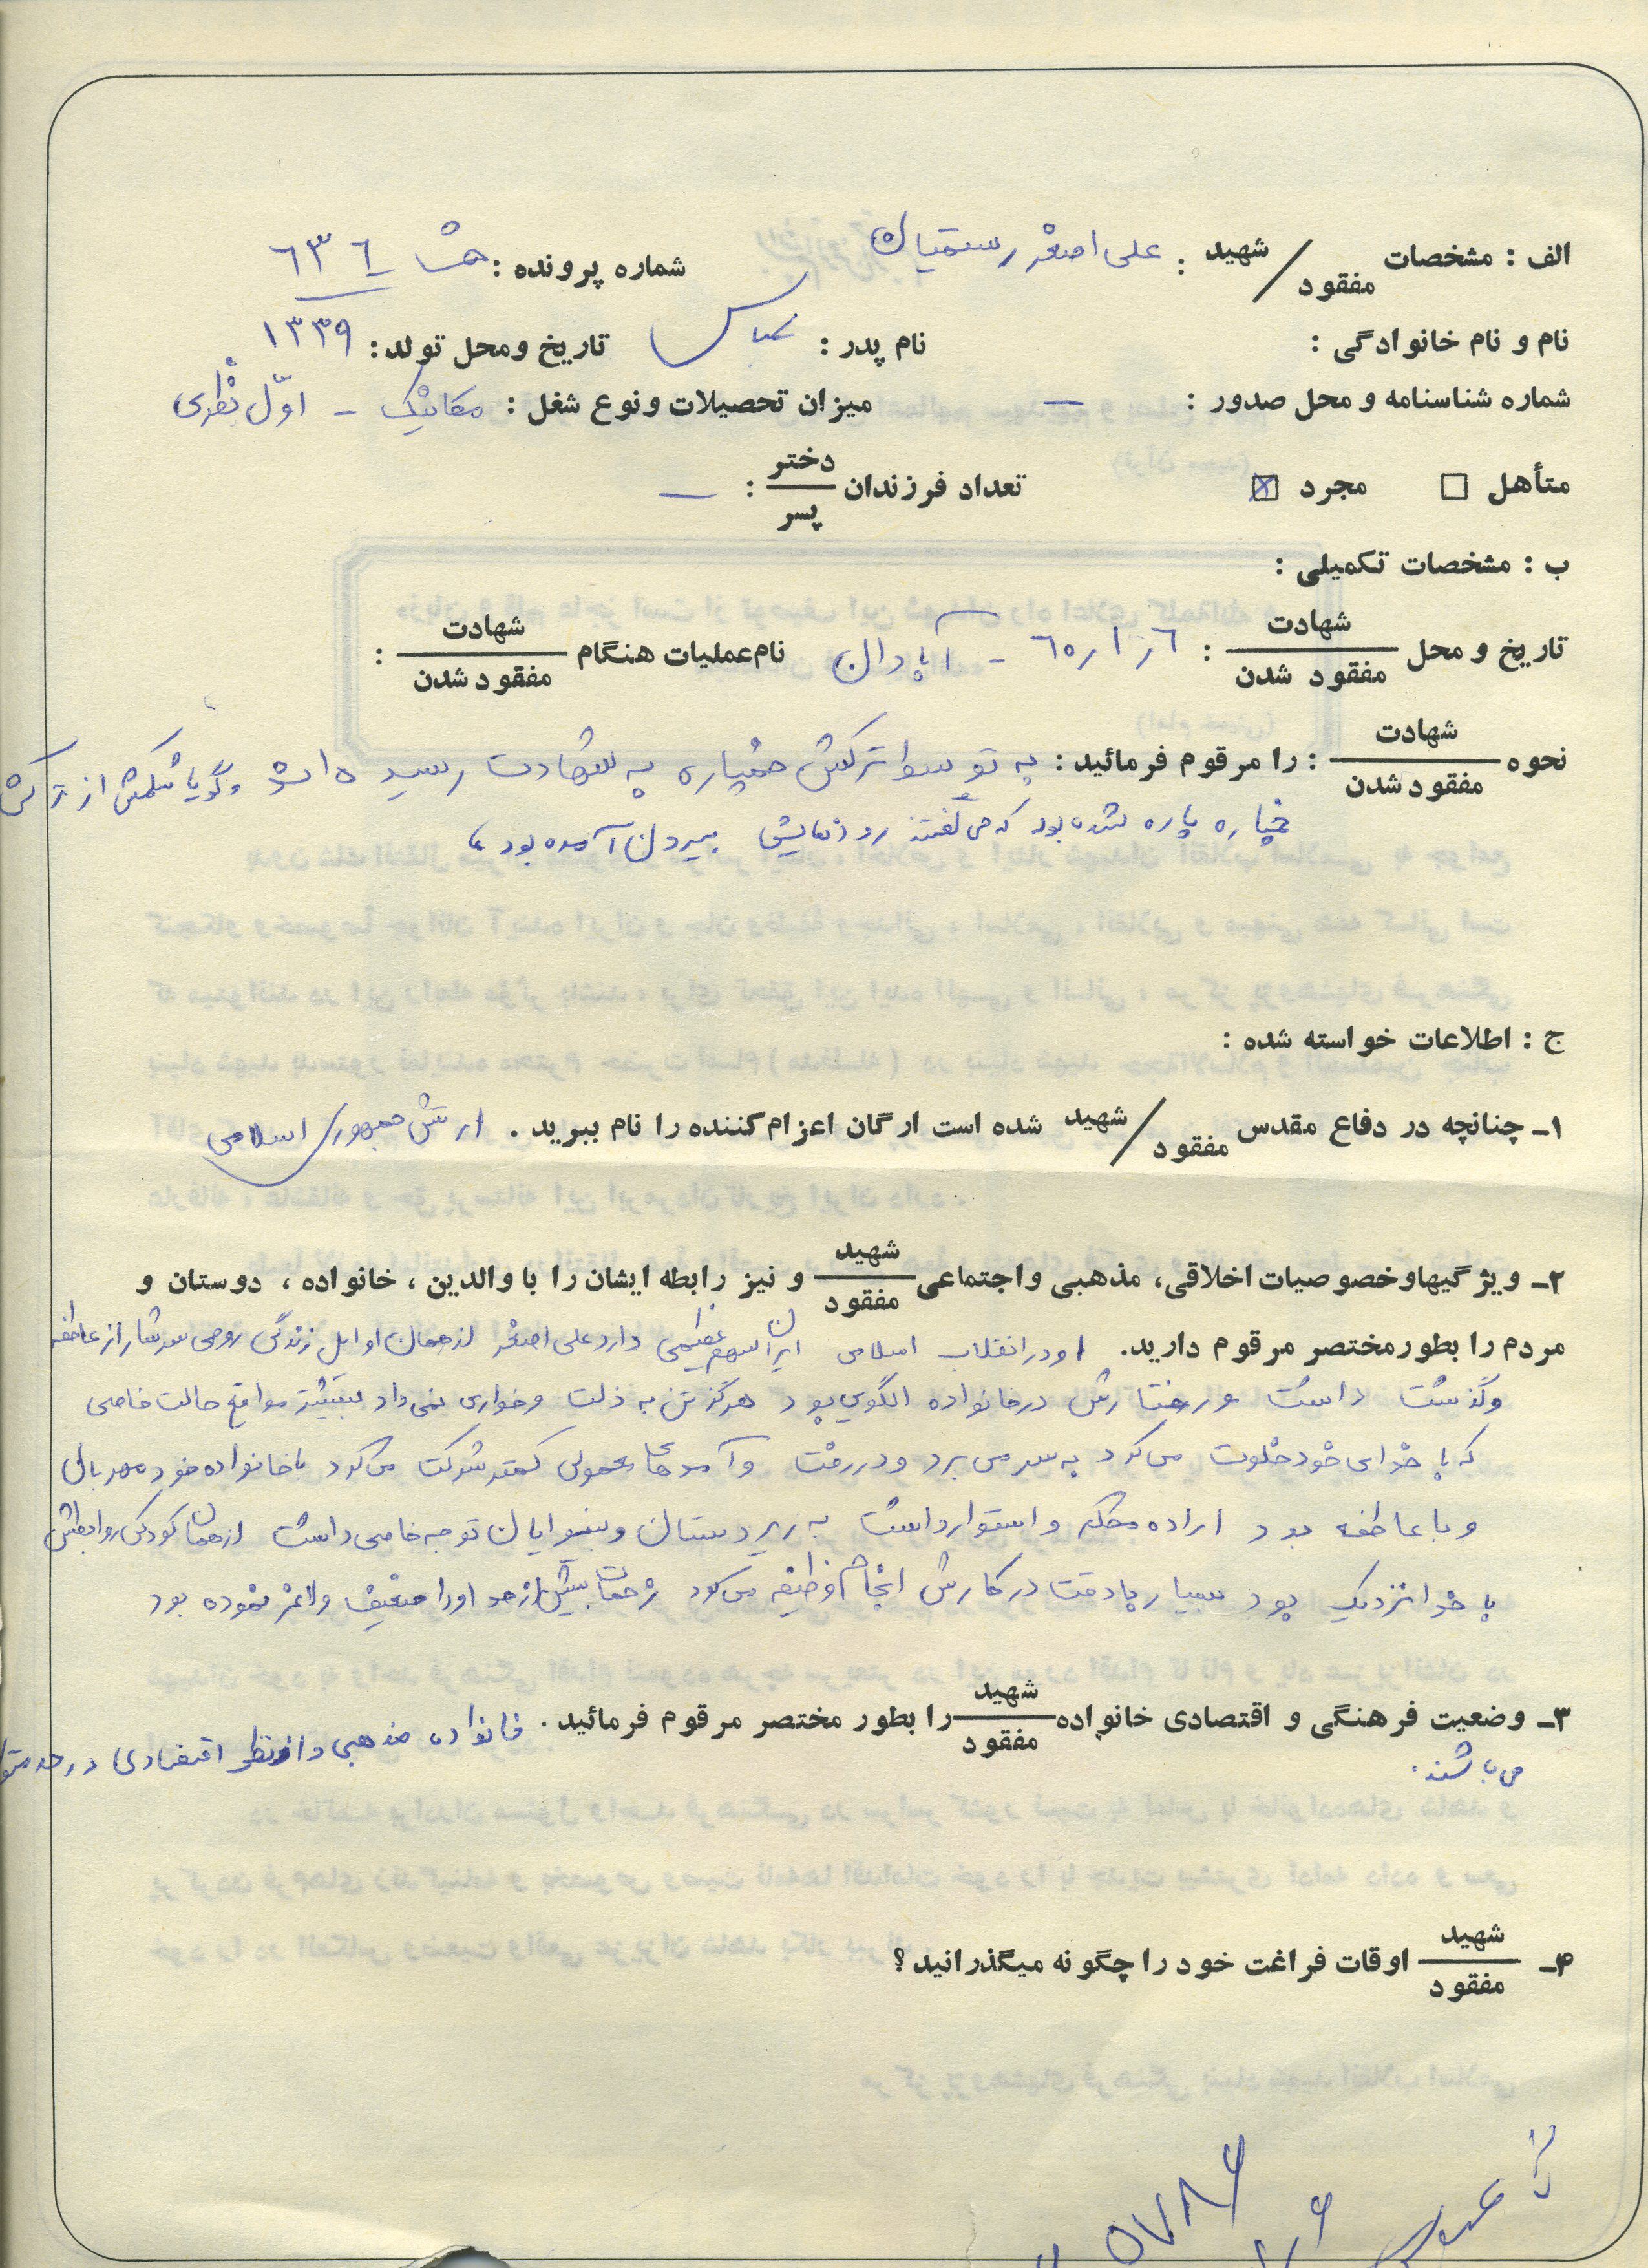 الف : مشخصات شهید / مفقود : علی اصغر رستمیان شماره پرونده : ٦٣٦
نام و نام خانوادگی : نام پدر : عباس تاریخ ومحل تولد : ۱۳۳۹
شماره شناسنامه و محل صدور : — میزان تحصیلات ونوع شغل : مکانیک - اوّل نظری
متأهل ☐ مجرد ☒ تعداد فرزندان دختر / پسر : —
ب : مشخصات تکمیلی :
تاریخ و محل شهادت / مفقود شدن : ٦۰/۱/٦ - آبادان نام عملیات هنگام شهادت / مفقود شدن :
نحوه شهادت / مفقود شدن : را مرقوم فرمائید : به توسط ترکش خمپاره به شهادت رسیده است و گویا شکمش از ترکش
خمپاره پاره شده بود که می گفتند روده هایش بیرون آمده بود
ج : اطلاعات خواسته شده :
۱ـ چنانچه در دفاع مقدس شهید / مفقود شده است ارگان اعزام کننده را نام ببرید . ارتش جمهوری اسلامی
۲ـ ویژگیها وخصوصیات اخلاقی، مذهبی واجتماعی شهید / مفقود و نیز رابطه ایشان را با والدین ، خانواده ، دوستان و
مردم را بطور مختصر مرقوم دارید. او در انقلاب اسلامی ایران سهم عظیمی دارد علی اصغر از همان اوایل زندگی روحی سرشار از عاطفه
و گذشت داشت و رفتارش در خانواده الگویی بود هرگز تن به ذلت و خواری نمی داد بیشتر مواقع حالت خاصی
که با خدای خود خلوت می کرد به سر می برد و در رفت و آمدهای معمولی کمتر شرکت می کرد با خانواده خود مهربان
و با عاطفه بود اراده محکم و استوار داشت به زیردستان و بینوایان توجه خاصی داشت از همان کودکی روابطش
با خدا نزدیک بود بسیار با دقت در کارش انجام وظیفه می کرد زحمات بیش از حد او را ضعیف و لاغر نموده بود
۳ـ وضعیت فرهنگی و اقتصادی خانواده شهید / مفقود را بطور مختصر مرقوم فرمائید . خانواده مذهبی و از نظر اقتصادی در حد
می باشند .
۴ـ شهید / مفقود اوقات فراغت خود را چگونه میگذرانید ؟